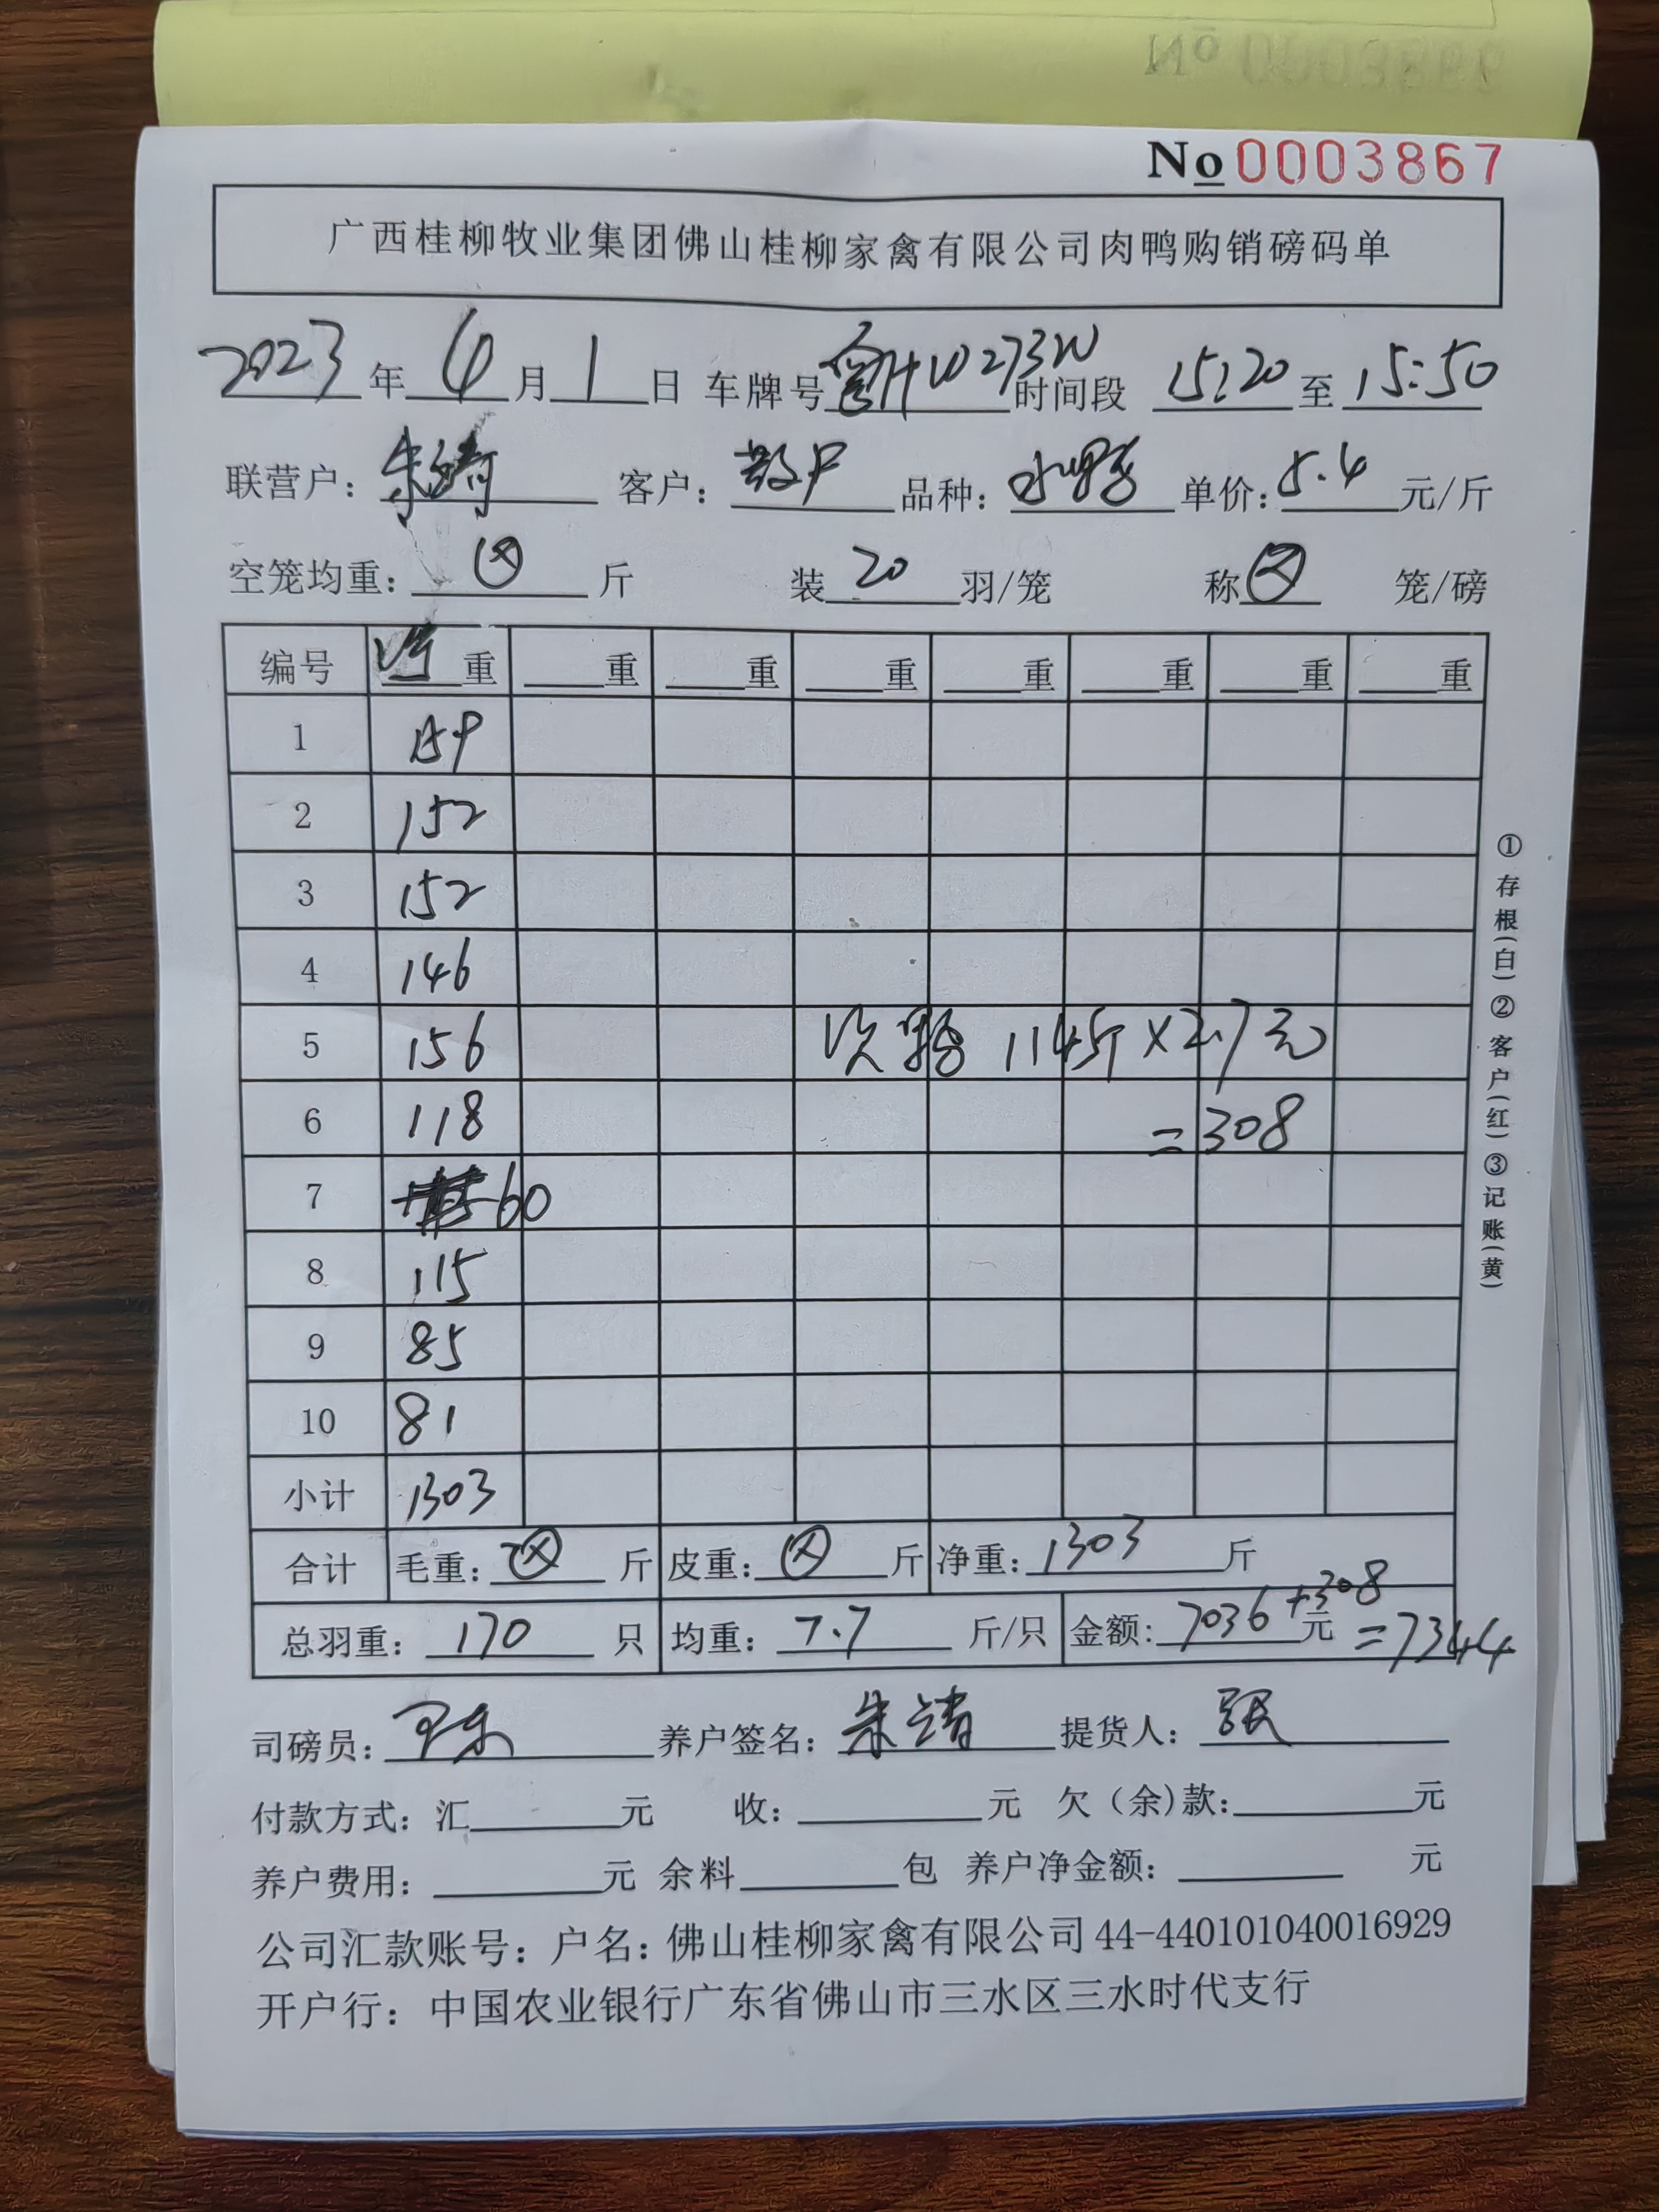 No 0003867
广西桂柳牧业集团佛山桂柳家禽有限公司肉鸭购销磅码单
2023年6月1日 车牌号粤HW273W时间段 15:20至15:50
联营户：朱 客户：散户 品种：水鸭 单价：5.4元/斤
空笼均重：ⓧ斤 装20羽/笼 称ⓧ笼/磅
编号 净重 重 重 重 重 重 重 重
1 159
2 152
3 152
4 146
5 156 次鸭 114斤×2.7元
6 118 =308
7 60
8 115
9 85
10 81
小计 1303
合计 毛重：ⓧ斤 皮重：ⓧ斤 净重：1303斤
总羽重：170只 均重：7.7斤/只 金额：7036元+308=7344
司磅员： 养户签名：朱靖 提货人：张
付款方式：汇 元 收： 元 欠（余）款： 元
养户费用： 元 余料 包 养户净金额： 元
公司汇款账号：户名：佛山桂柳家禽有限公司 44-440101040016929
开户行：中国农业银行广东省佛山市三水区三水时代支行
①存根(白)②客户(红)③记账(黄)